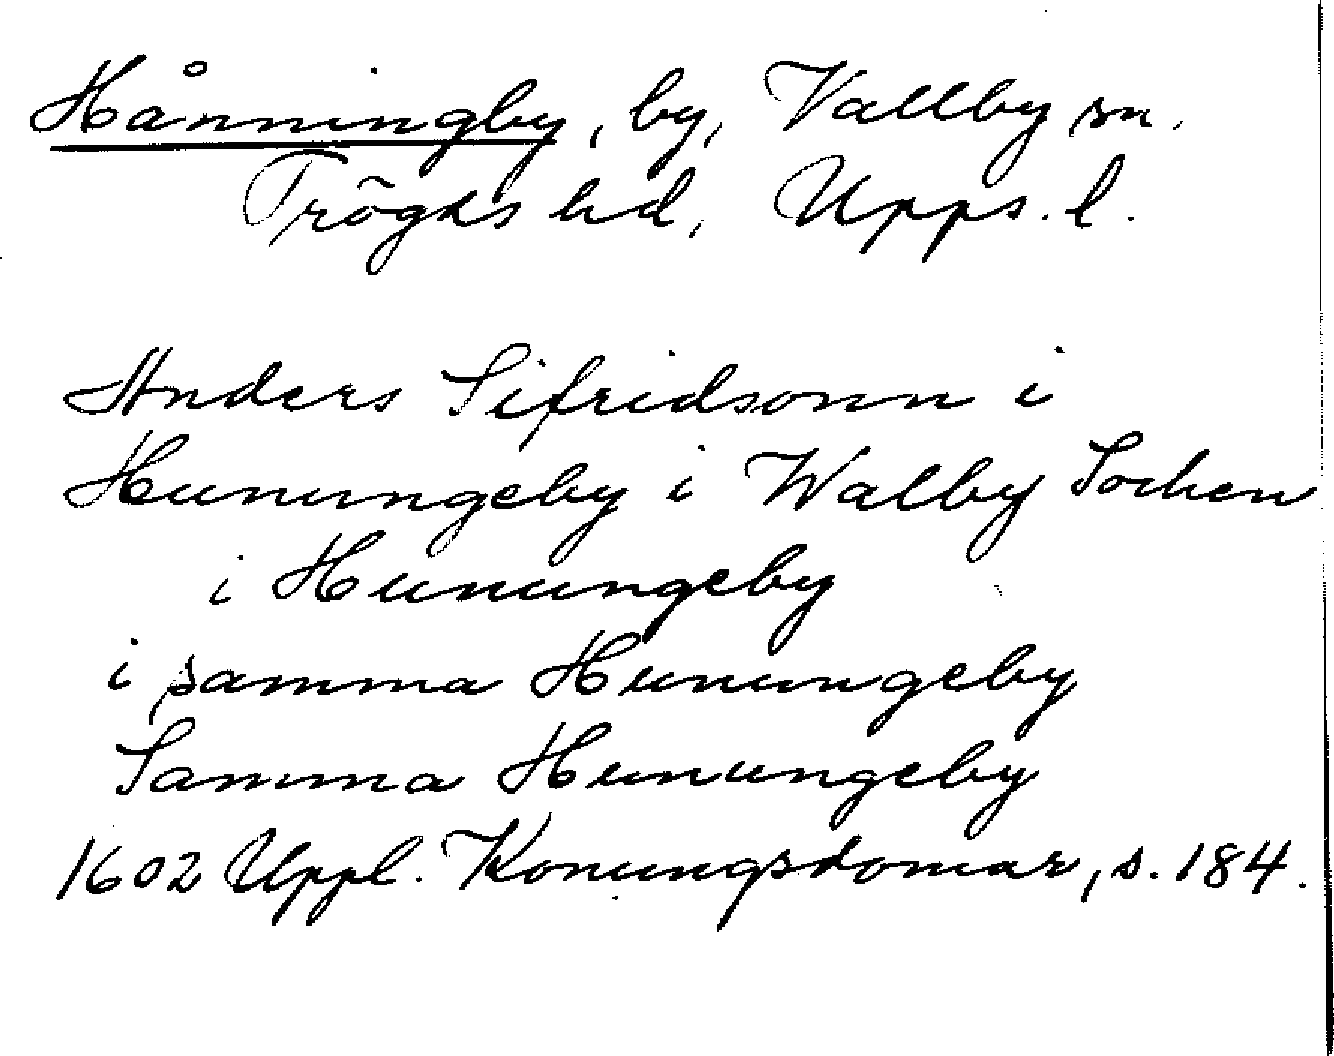 Hånningby, by, Vallby sn.
Trögds hd, Upps. l.
Anders Sifridsonn i
Hunungeby i Walby Sochen
i Hunungeby
i samma Hunungeby
Samma Hunungeby
1602 Uppl. Konungsdomar, s. 184.